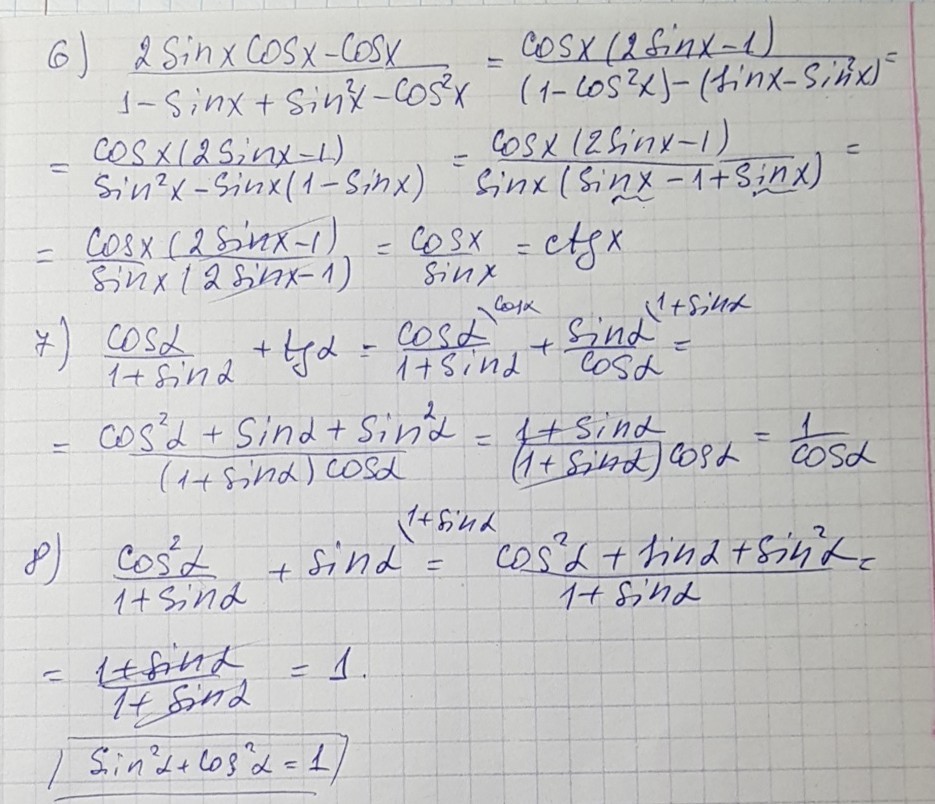 6) (2 sinx cosx - cosx)/(1 - sinx + sin²x - cos²x) = (cosx (2 sinx - 1))/((1 - cos²x) - (sinx - sin²x)) =
= (cosx (2 sinx - 1))/(sin²x - sinx (1 - sinx)) = (cosx (2 sinx - 1))/(sinx (sinx - 1 + sinx)) =
= (cosx (2 sinx - 1))/(sinx (2 sinx - 1)) = cosx/sinx = ctgx
7) cosα/(1 + sinα) + tgα = cosα/(1 + sinα) \cosα + sinα/cosα \1 + sinα =
= (cos²α + sinα + sin²α)/((1 + sinα) cosα) = (1 + sinα)/((1 + sinα) cosα) = 1/cosα
8) cos²α/(1 + sinα) + sinα \1 + sinα = (cos²α + sinα + sin²α)/(1 + sinα) =
= (1 + sinα)/(1 + sinα) = 1.
sin²α + cos²α = 1